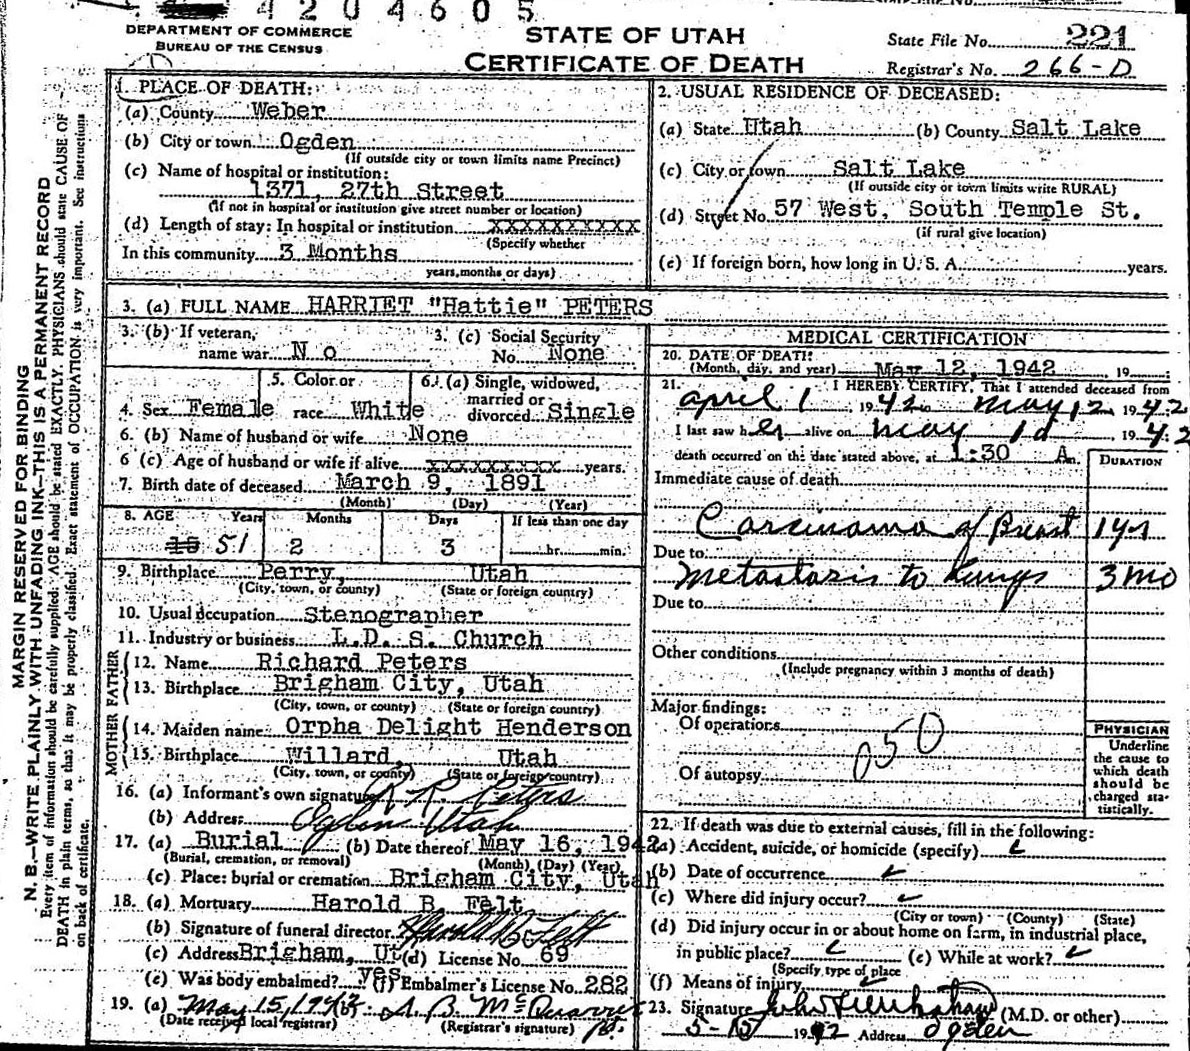 4204605
DEPARTMENT OF COMMERCE
BUREAU OF THE CENSUS
STATE OF UTAH
CERTIFICATE OF DEATH
State File No. 221
Registrar's No. 266-D
MARGIN RESERVED FOR BINDING
N. B.—WRITE PLAINLY WITH UNFADING INK—THIS IS A PERMANENT RECORD
Every item of information should be carefully supplied. AGE should be stated EXACTLY. PHYSICIANS should state CAUSE OF
DEATH in plain terms, so that it may be properly classified. Exact statement of OCCUPATION is very important. See instructions
on back of certificate.
1. PLACE OF DEATH:
(a) County Weber
(b) City or town Ogden
(If outside city or town limits name Precinct)
(c) Name of hospital or institution:
1371, 27th Street
(If not in hospital or institution give street number or location)
(d) Length of stay: In hospital or institution xxxxxxxxxx
(Specify whether
In this community 3 Months
years, months or days)
2. USUAL RESIDENCE OF DECEASED:
(a) State Utah (b) County Salt Lake
(c) City or town Salt Lake
(If outside city or town limits write RURAL)
(d) Street No. 57 West, South Temple St.
(if rural give location)
(e) If foreign born, how long in U. S. A. years.
3. (a) FULL NAME HARRIET "Hattie" PETERS
3. (b) If veteran, name war No
3. (c) Social Security No. None
4. Sex Female
5. Color or race White
6. (a) Single, widowed, married or divorced Single
6. (b) Name of husband or wife None
6 (c) Age of husband or wife if alive xxxxxxxxx years.
7. Birth date of deceased March 9, 1891
(Month) (Day) (Year)
8. AGE Years Months Days If less than one day
51 2 3 hr. min.
9. Birthplace Perry, Utah
(City, town, or county) (State or foreign country)
10. Usual occupation Stenographer
11. Industry or business L.D. S. Church
FATHER
12. Name Richard Peters
13. Birthplace Brigham City, Utah
(City, town, or county) (State or foreign country)
MOTHER
14. Maiden name Orpha Delight Henderson
15. Birthplace Willard, Utah
(City, town, or county) (State or foreign country)
16. (a) Informant's own signature R. R. Peters
(b) Address Ogden Utah
17. (a) Burial (b) Date thereof May 16, 1942
(Burial, cremation, or removal) (Month) (Day) (Year)
(c) Place: burial or cremation Brigham City, Utah
18. (a) Mortuary Harold B. Felt
(b) Signature of funeral director Harold B Felt
(c) Address Brigham, Ut (d) License No. 69
(e) Was body embalmed? yes (f) Embalmer's License No. 282
19. (a) May 15, 1942 (b)
(Date received local registrar) (Registrar's signature)
MEDICAL CERTIFICATION
20. DATE OF DEATH:
(Month, day, and year) May 12, 1942 19
21. I HEREBY CERTIFY, That I attended deceased from
April 1 1942 to May 12 1942
I last saw her alive on May 1942
death occurred on the date stated above, at 1:30 A.
DURATION
Immediate cause of death
Carcinoma of Breast 1 yr
Due to
Metastasis to Lungs 3 mo
Due to
Other conditions
(Include pregnancy within 3 months of death)
Major findings:
Of operations
050
Of autopsy
PHYSICIAN
Underline
the cause to
which death
should be
charged sta-
tistically.
22. If death was due to external causes, fill in the following:
(a) Accident, suicide, or homicide (specify)
(b) Date of occurrence
(c) Where did injury occur?
(City or town) (County) (State)
(d) Did injury occur in or about home on farm, in industrial place,
in public place? (e) While at work?
(Specify type of place
(f) Means of injury
23. Signature (M.D. or other)
5-15 1942 Address Ogden